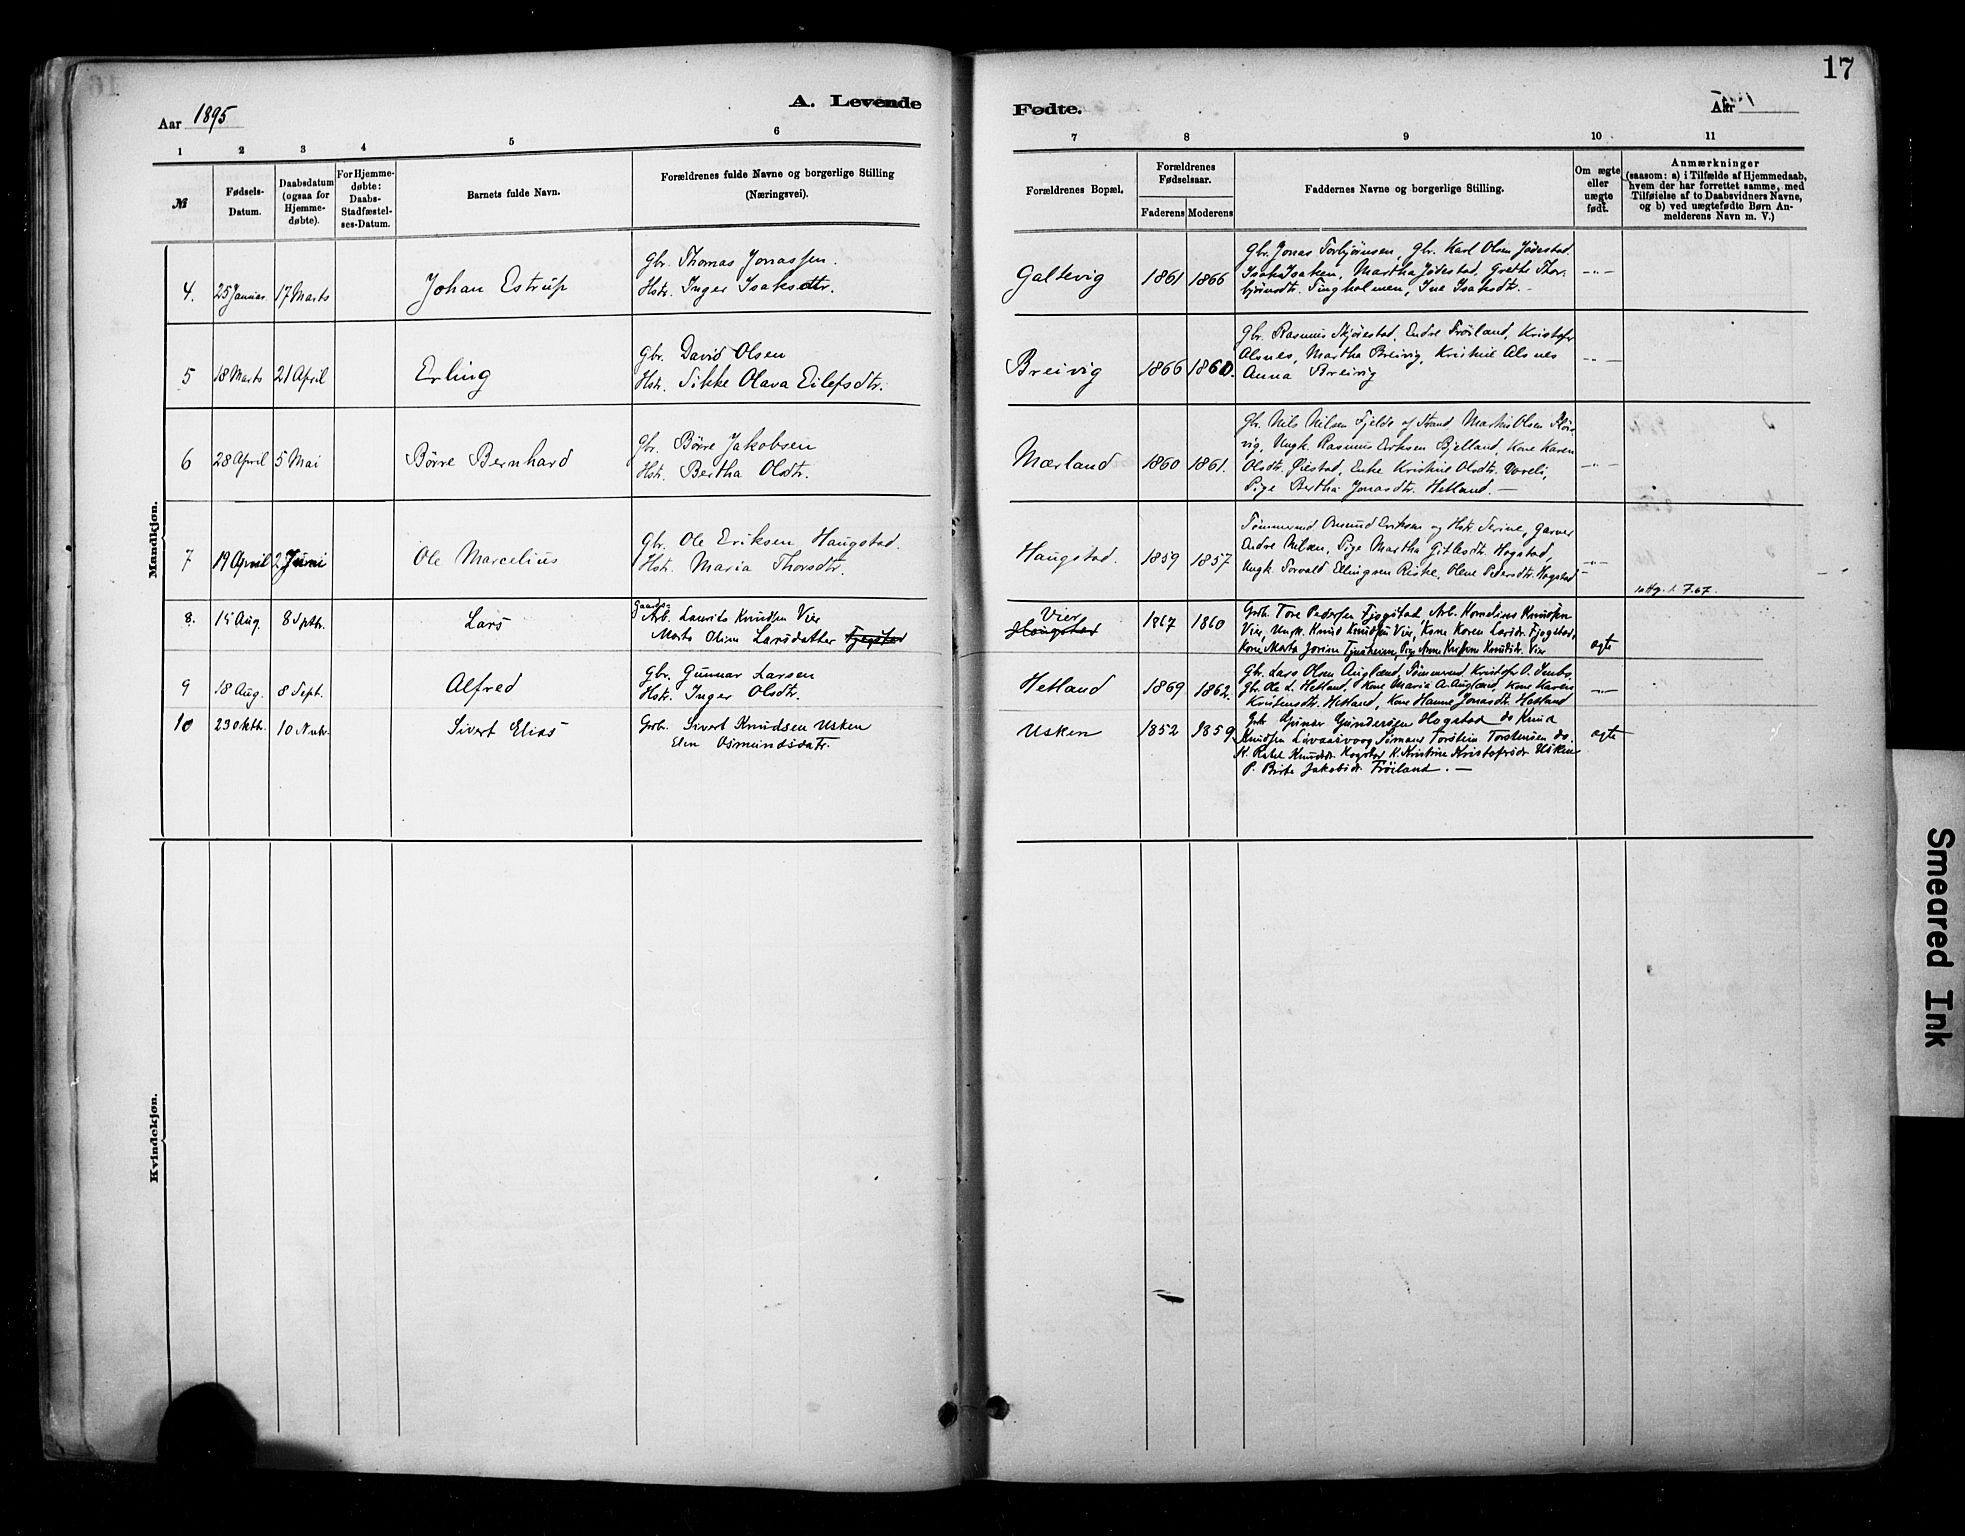 17
Aar 1895
A. Levende
Fødte.
Aar
1 2 3 4 5 6
7 8 9 10 11
№
Fødsels-
Datum.
Daabsdatum
(ogsaa for
Hjemme-
døbte).
For Hjemme-
døbte:
Daabs-
Stadfæstel-
ses-Datum.
Barnets fulde Navn.
Forældrenes fulde Navne og borgerlige Stilling
(Næringsvei).
Forældrenes Bopæl.
Forældrenes
Fødselsaar.
Faderens Moderens
Faddernes Navne og borgerlige Stilling.
Om ægte
eller
uægte
født.
Anmærkninger
(saasom: a) i Tilfælde af Hjemmedaab,
hvem der har forrettet samme, med
Tilføielse af to Daabsvidners Navne,
og b) ved uægtefødte Børn An-
melderens Navn m. V.)
Mandkjøn.
4. 25 Januar 17 Marts Johan Estrup
Gbr. Thomas Jonassen.
Hstr. Inger Isaksdtr.
Galtevig 1861 1866
Gbr. Jonas Torbjörnsen, Gbr. Karl Olsen Jödestad
Isak Isaksen, Martha Jödestad, Grethe Thor-
björnsdtr. Tingholmen, Ine Isaksdtr. -
-"-
5 18 Marts 21 April Erling
Gbr. David Olsen
Hstr. Sikke Olava Eilefsdtr.
Breivig 1866 1860.
Gbr. Rasmus Skjörestad, Endre Fröiland, Kristofer
Alsnes, Martha Breivig, Kristine Alsnes
Anna Breivig
-"-
6 28 April 5 Mai Börre Bernhard
Gbr. Börre Jakobsen
Hstr. Bertha Olsdtr.
Mærland 1860 1861.
Gbr. Nils Nilsen Fjelde af Strand Martin Olsen
vig, Ungk. Rasmus Eriksen Bjelland, Kone Karen
Olsdtr. Øiestad, Enke Kristine Olsdtr.
Pige Bertha Jonasdtr. Hetland. -
-"-
7 19 April 2 Juni Ole Marcelius
Gbr. Ole Eriksen Haugstad.
Hstr. Maria Thorsdtr.
Haugstad. 1859 1857
Tömmermd Osmund Eriksen og Hstr. Serine, Garver
Endre Nilsen, Pige Martha Gitlesdtr. Hogstad,
Ungk. Torvald Ellingsen Riske, Olene Pedersdtr. Hogstad -
-"-
8. 15 Aug. 8 Septbr. Lars
Gaard
Arb. Laurits Knudsen Vier
Marta Oline Larsdatter Fjogstad
Vier
Haugstad
1867 1860
Grdb. Tore Pedersen Fjogstad, Arb. Kornelius Knudsen
Vier, Ungk. Knud Knudsen Vier, Kone Karen Larsdr. Fjogstad,
Kone Marta Jorine Tjusheim, Pige Anne Kristine Knudsdr. Vier
ægte
9 18 Aug. 8 Sept. Alfred
Gbr. Gunnar Larsen
Hstr. Inger Olsdtr.
Hetland 1869 1862.
Gbr. Lars Olsen Augland, Tömmermd. Kristofer O.
Gbr. Ole L. Hetland, Kone Maria A. Augland, Kone Karen
Knutsensdtr. Hetland, Kone Hanne Jonasdtr. Hetland
-"-
10 23 Oktb. 10 Nvbr. Sivert Elias
Grb. Sivert Knudsen Usken
Elen Osmundsdatr.
Usken 1852 1859
Grb Gunar Gundersen Hogstad do Knud
Knudsen Livaasvoog Sömand Torstein Torstensen do.
K. Rakel Knudsdr Hogstad K. Kristine Kristofersdr Usken
P. Birte Jakobsdr. Fröiland. -
ægte
Kvindekjøn.
Smeared Ink